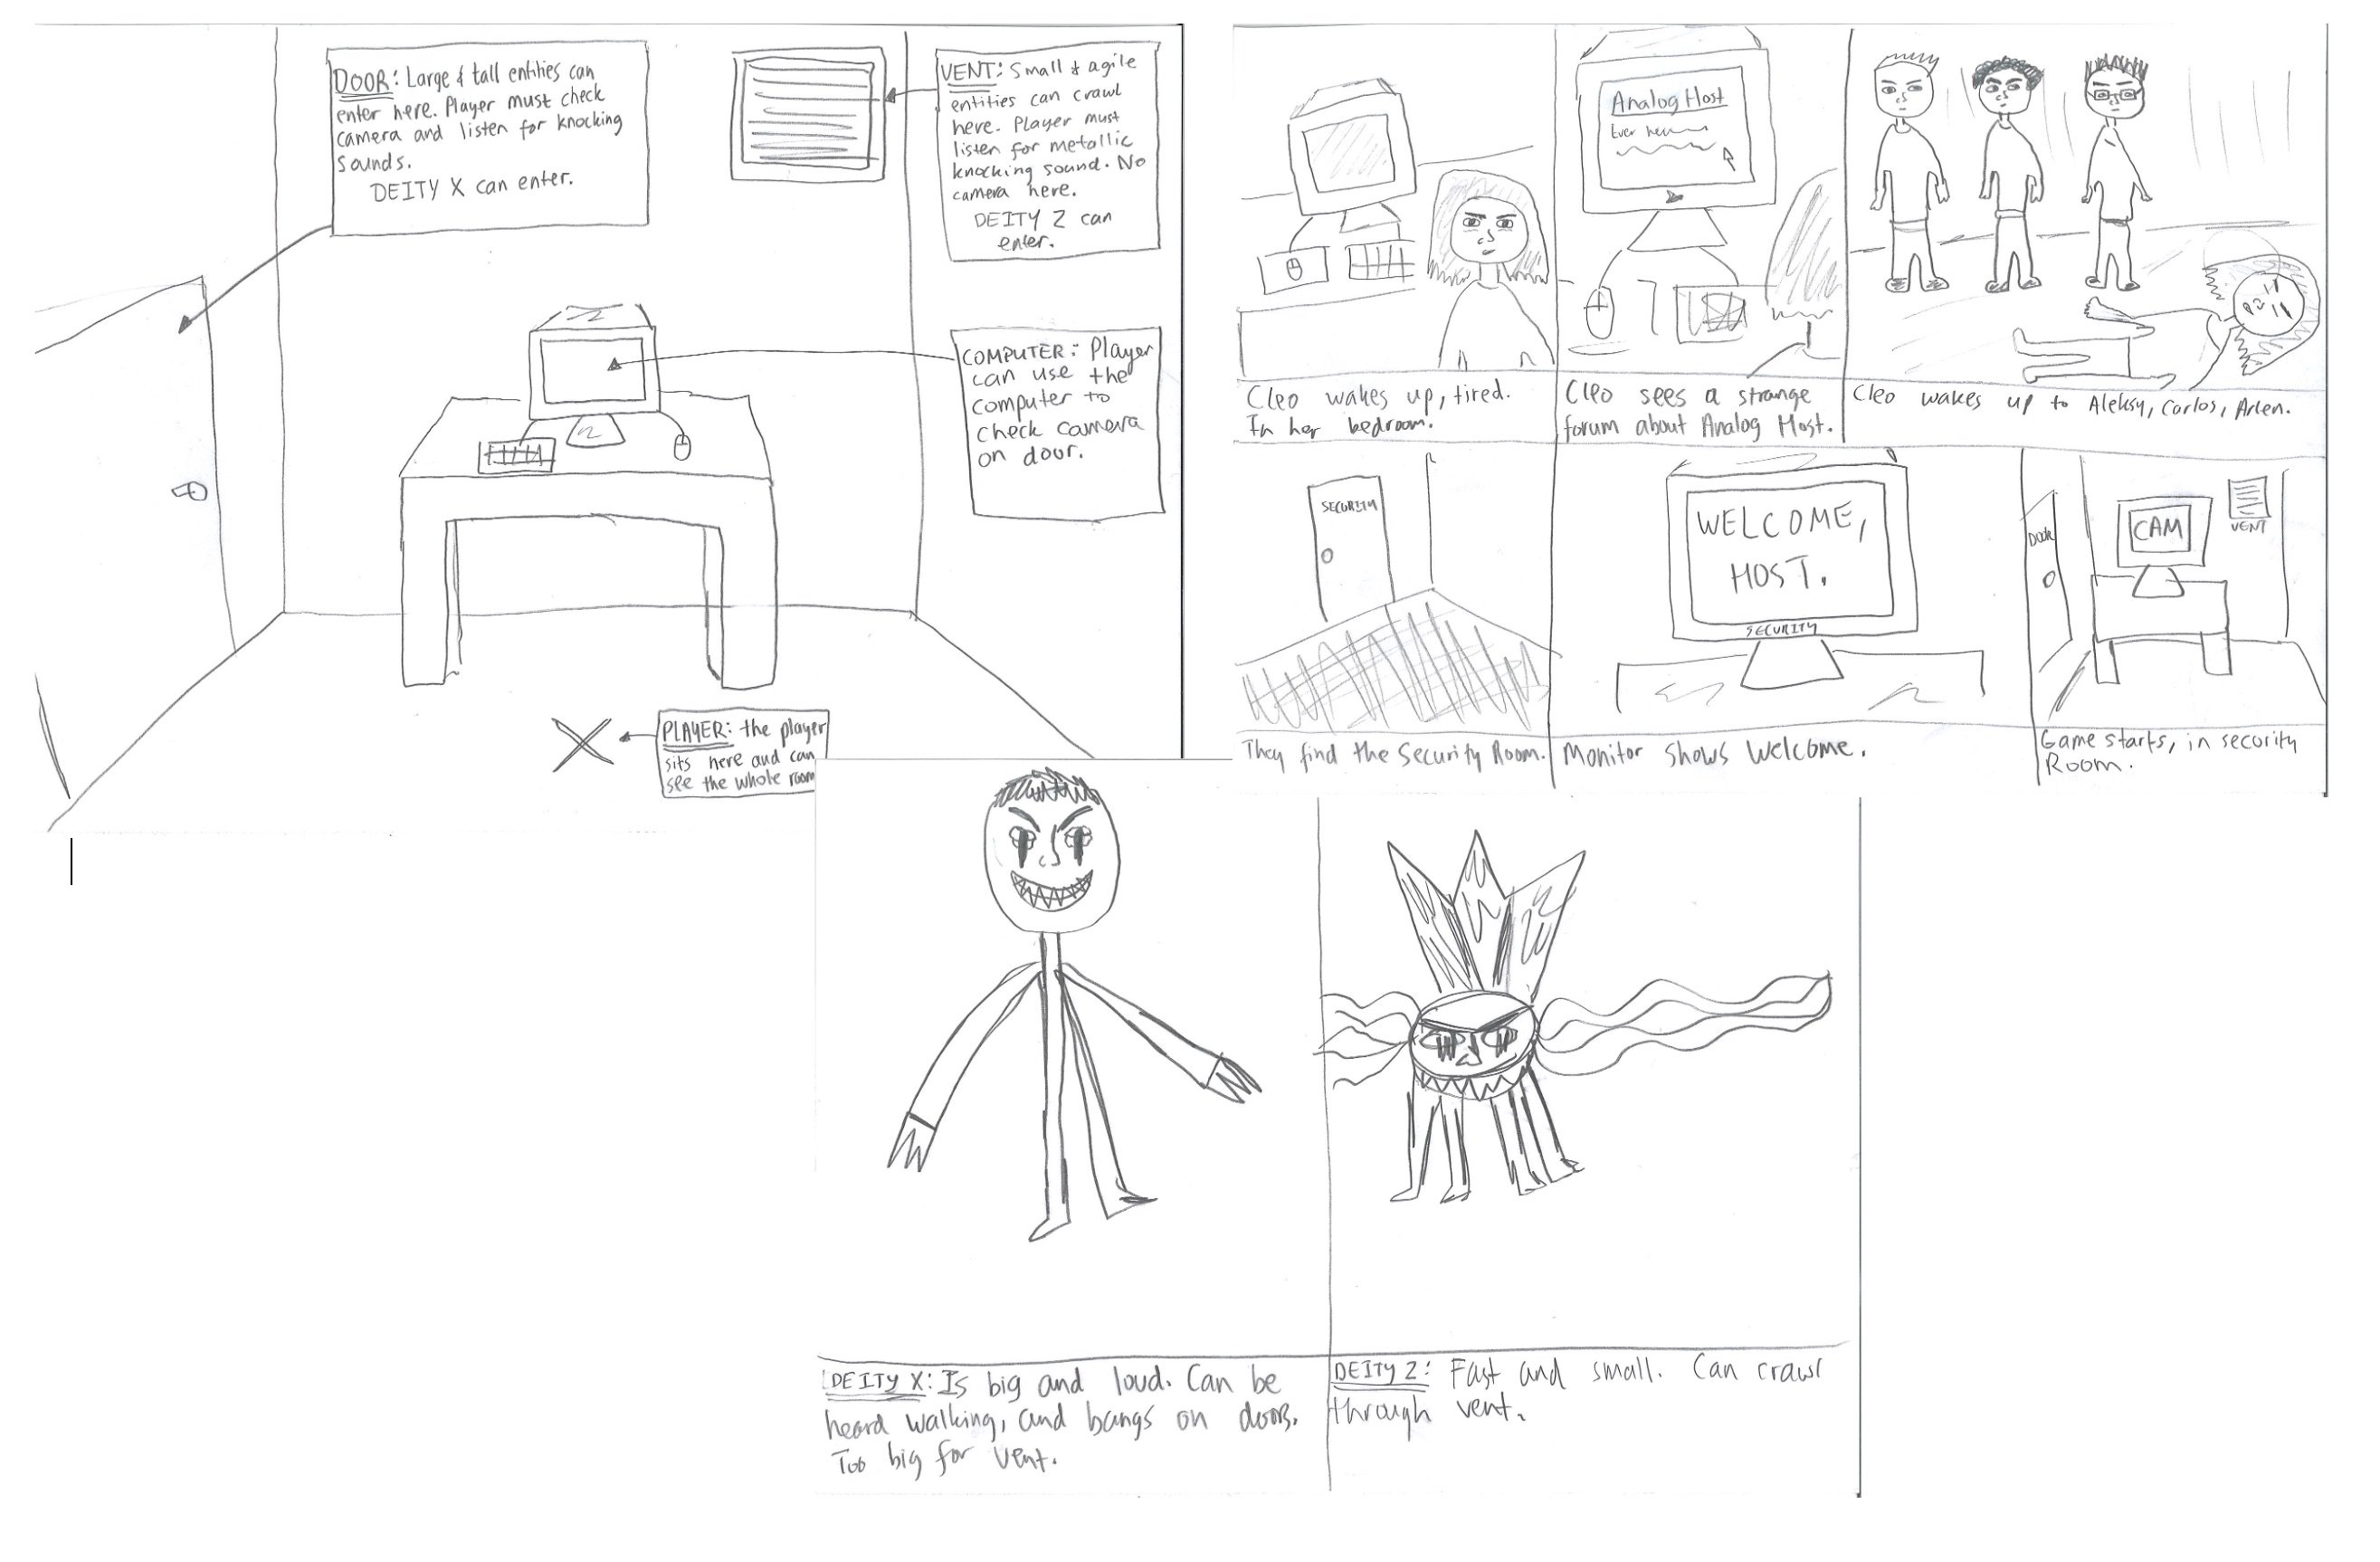 DOOR: Large & tall entities can
enter here. Player must check
camera and listen for knocking
sounds.
DEITY X can enter.
VENT: Small & agile
entities can crawl
here. Player must
listen for metallic
knocking sound. No
camera here.
DEITY Z can
enter.
COMPUTER: Player
can use the
computer to
check camera
on door.
PLAYER: the player
sits here and can
see the whole room
Analog Host
Ever
Cleo wakes up, tired.
In her bedroom.
Cleo sees a strange
forum about Analog Host.
Cleo wakes up to Aleksy, Carlos, Arlen.
SECURITY
WELCOME,
HOST.
SECURITY
DOOR
CAM
VENT
They find the Security Room.
Monitor shows Welcome.
Game starts, in security
Room.
DEITY X: Is big and loud. Can be
heard walking, and bangs on doors.
Too big for vent.
DEITY Z: Fast and small. Can crawl
through vent.